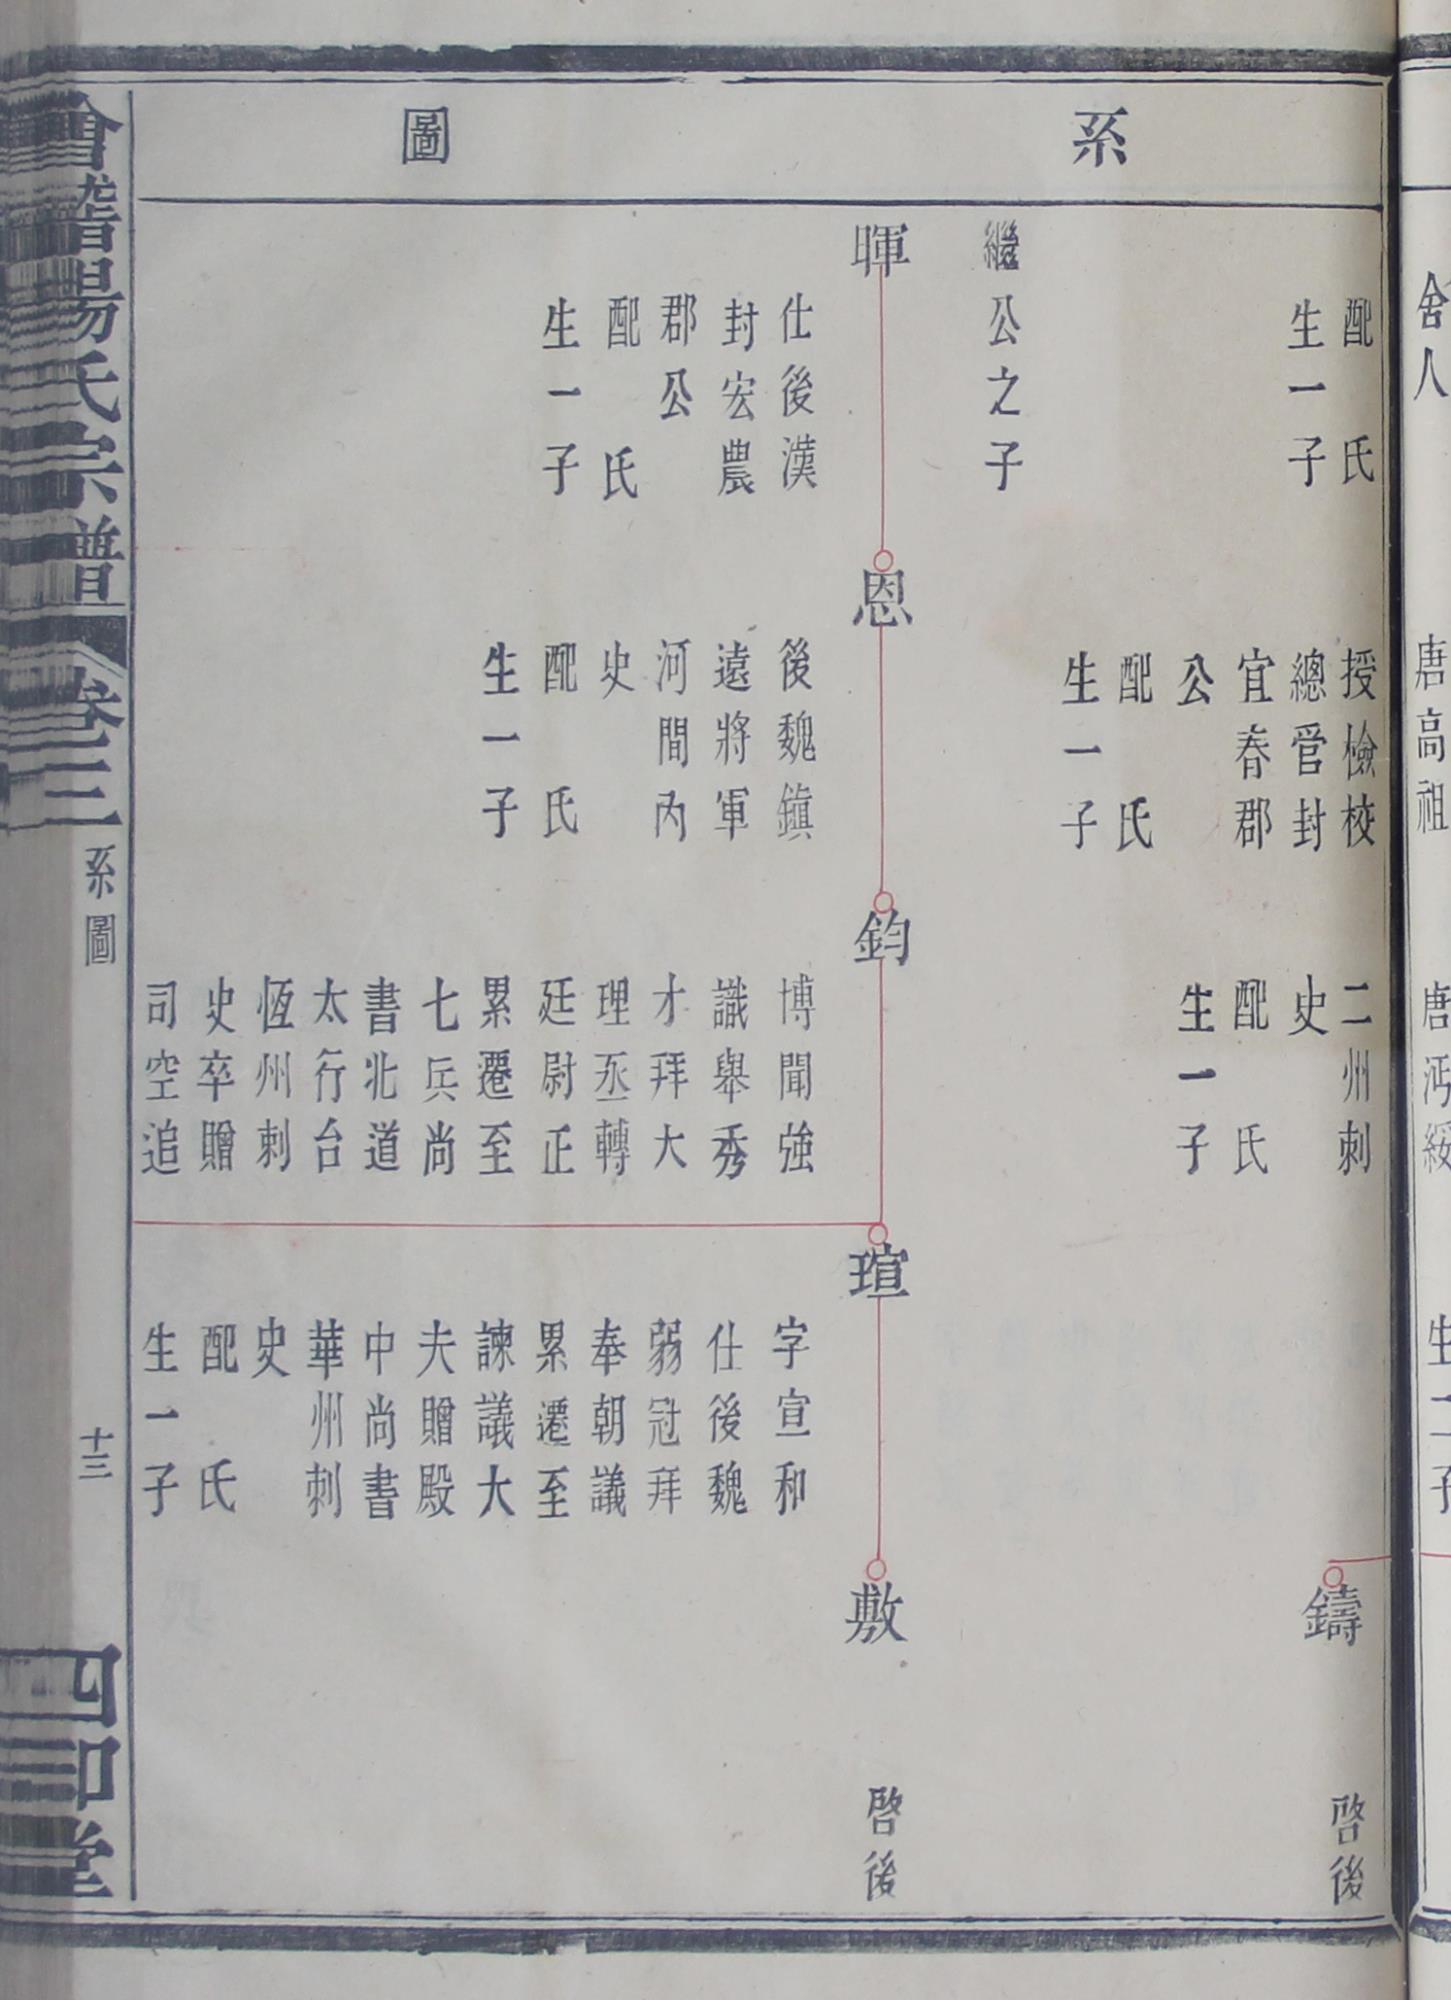 舍人
唐高祖
唐沔綏
生二子
系圖
配 氏
生一子
授檢校
總管封
宜春郡
公
配 氏
生一子
二州刺
史
配 氏
生一子
鑄
啓後
繼公之子
暉
仕後漢
封宏農
郡公
配 氏
生一子
恩
後魏鎮
遠將軍
河間內
史
配 氏
生一子
鈞
博聞強
識舉秀
才拜大
理丞轉
廷尉正
累遷至
七兵尚
書北道
太行台
恆州刺
史卒贈
司空追
瑄
字宣和
仕後魏
弱冠拜
奉朝議
累遷至
諫議大
夫贈殿
中尚書
華州刺
史
配 氏
生一子
敷
啓後
會稽楊氏宗譜
卷三
系圖
十三
四知堂